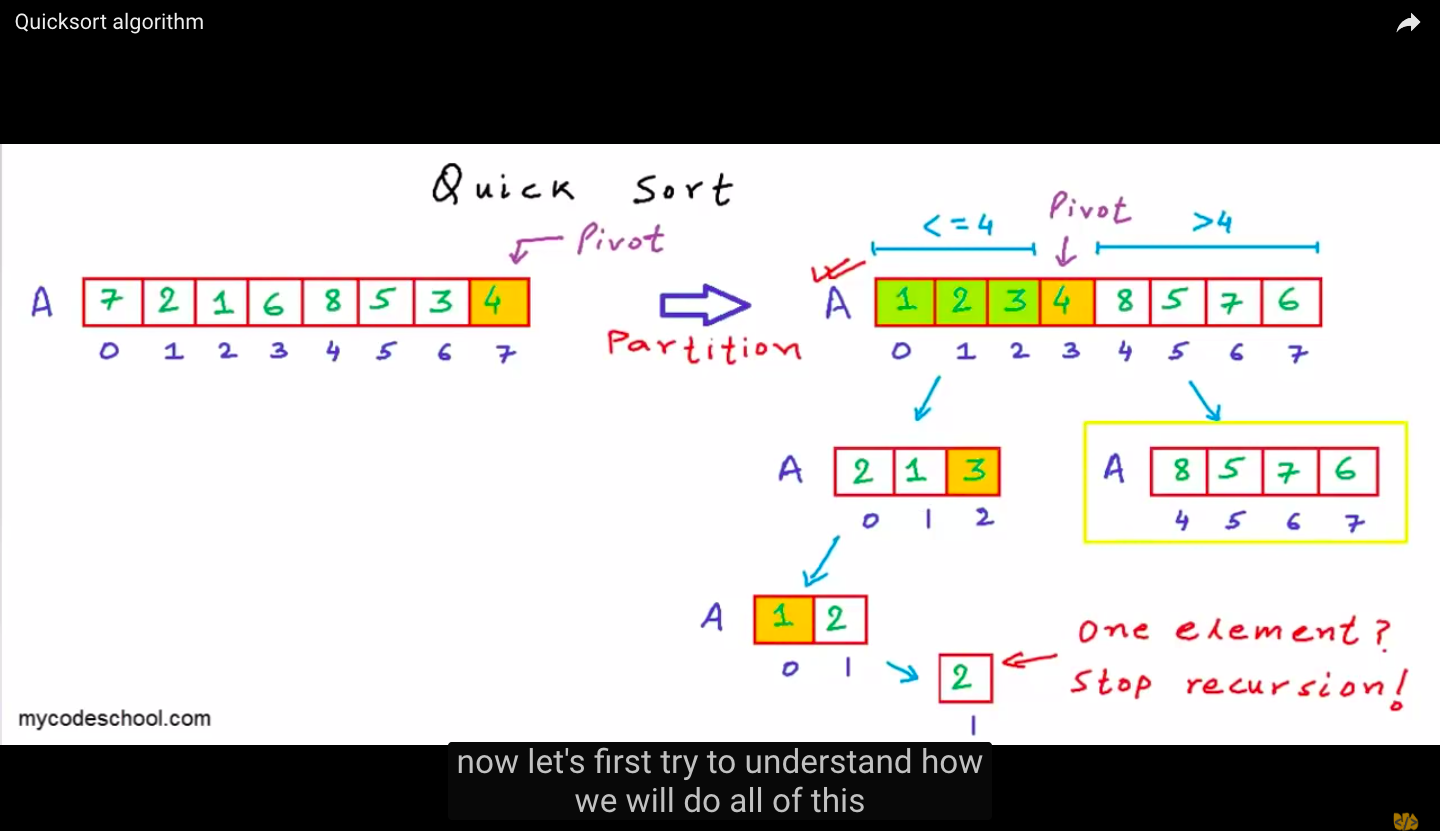 Quicksort algorithm
Quick Sort
Pivot
<=4
Pivot
>4
A 7 2 1 6 8 5 3 4
0 1 2 3 4 5 6 7
Partition
A 1 2 3 4 8 5 7 6
0 1 2 3 4 5 6 7
A 2 1 3
0 1 2
A 8 5 7 6
4 5 6 7
A 1 2
0 1
2
1
One element?
Stop recursion!
mycodeschool.com
now let's first try to understand how
we will do all of this